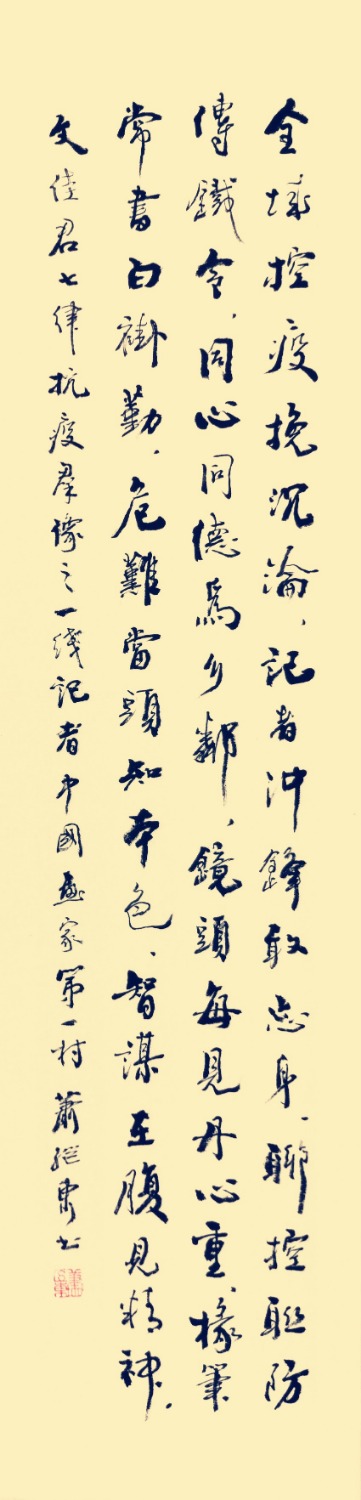 全域控疫挽沉淪、記者沖鋒敢忘身、聯控联防
傳鐵令、同心同德爲乡鄰、鏡頭每見丹心重、椽筆
常書白褂勤、危難當頭知本色、智謀在腹見精神、
文佳君七律抗疫羣像之一綫記者中國画家第一村蕭继東书